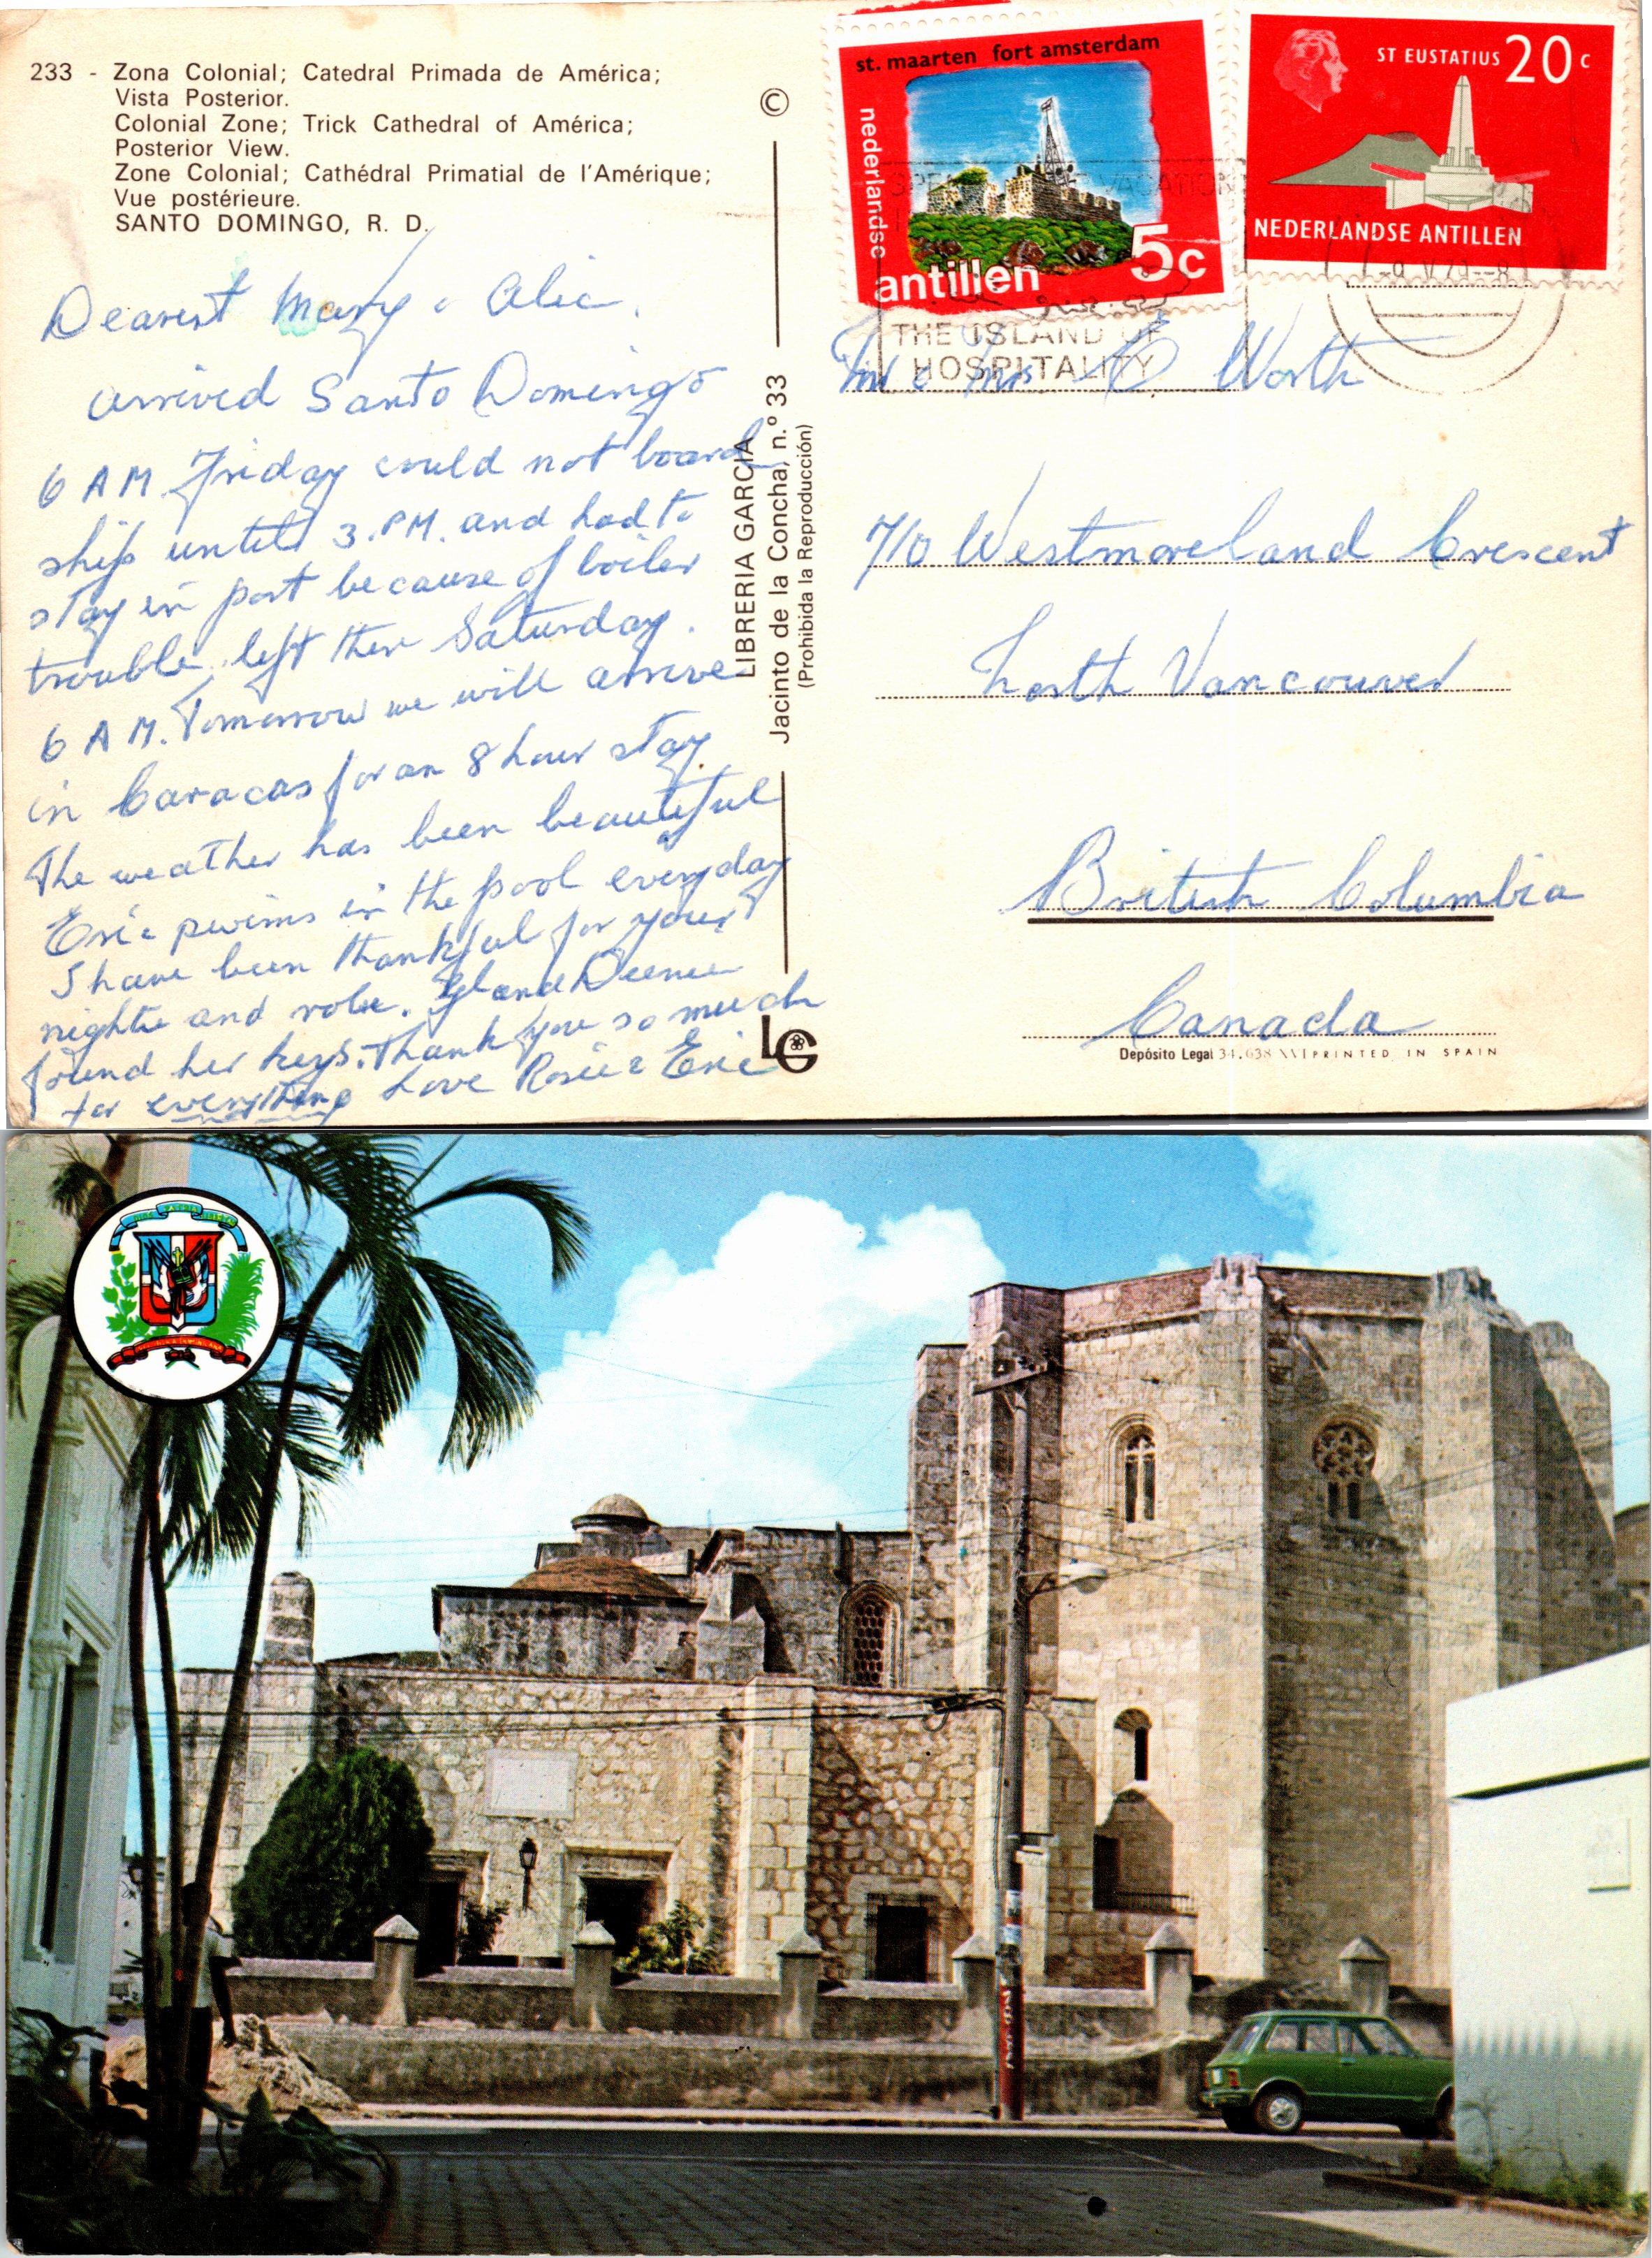 233 - Zona Colonial; Catedral Primada de América;
Vista Posterior.
Colonial Zone; Trick Cathedral of América;
Posterior View.
Zone Colonial; Cathédral Primatial de l'Amérique;
Vue postérieure.
SANTO DOMINGO, R. D.
Dearest Mary & Alic.
arrived Santo Domingo
6 AM Friday could not board
ship until 3.PM. and had to
stay in port because of boiler
trouble, left then Saturday.
6 AM. Tomorrow we will arrive
in Caracas for an 8 hour stay.
The weather has been beautiful
Eric swims in the pool everyday
I have been thankful for your
nightie and robe. Glad
found her keys. Thank you so much
for everything Love Rosie & Eric
©
LIBRERIA GARCIA
Jacinto de la Concha, n.º 33
(Prohibida la Reproducción)
LG
st. maarten fort amsterdam
nederlandse
antillen
5c
ST EUSTATIUS 20c
NEDERLANDSE ANTILLEN
VACATION
THE ISLAND OF
HOSPITALITY
Mr & Mrs A Worth
710 Westmoreland Crescent
North Vancouver
British Columbia
Canada
Depósito Legal 34.638 XVI PRINTED IN SPAIN